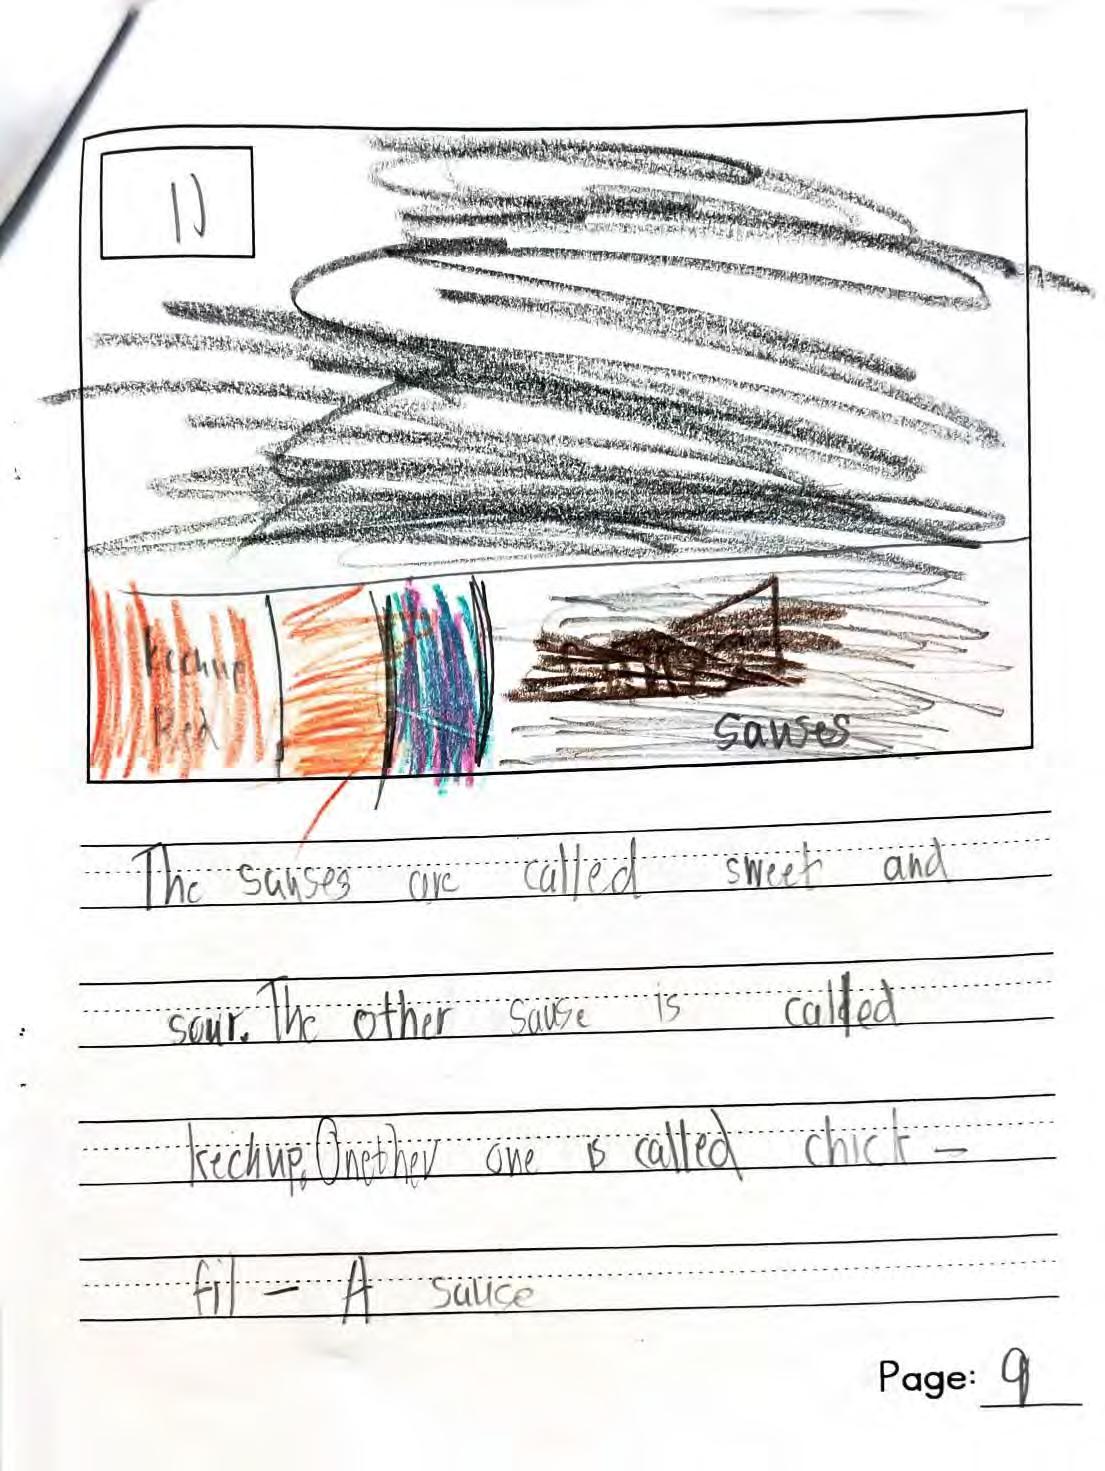 kechup
Red
sauses
The sauses are called sweet and
sour. The other sause is called
kechup. Onether one is called chick —
fil — A sauce
Page: 9